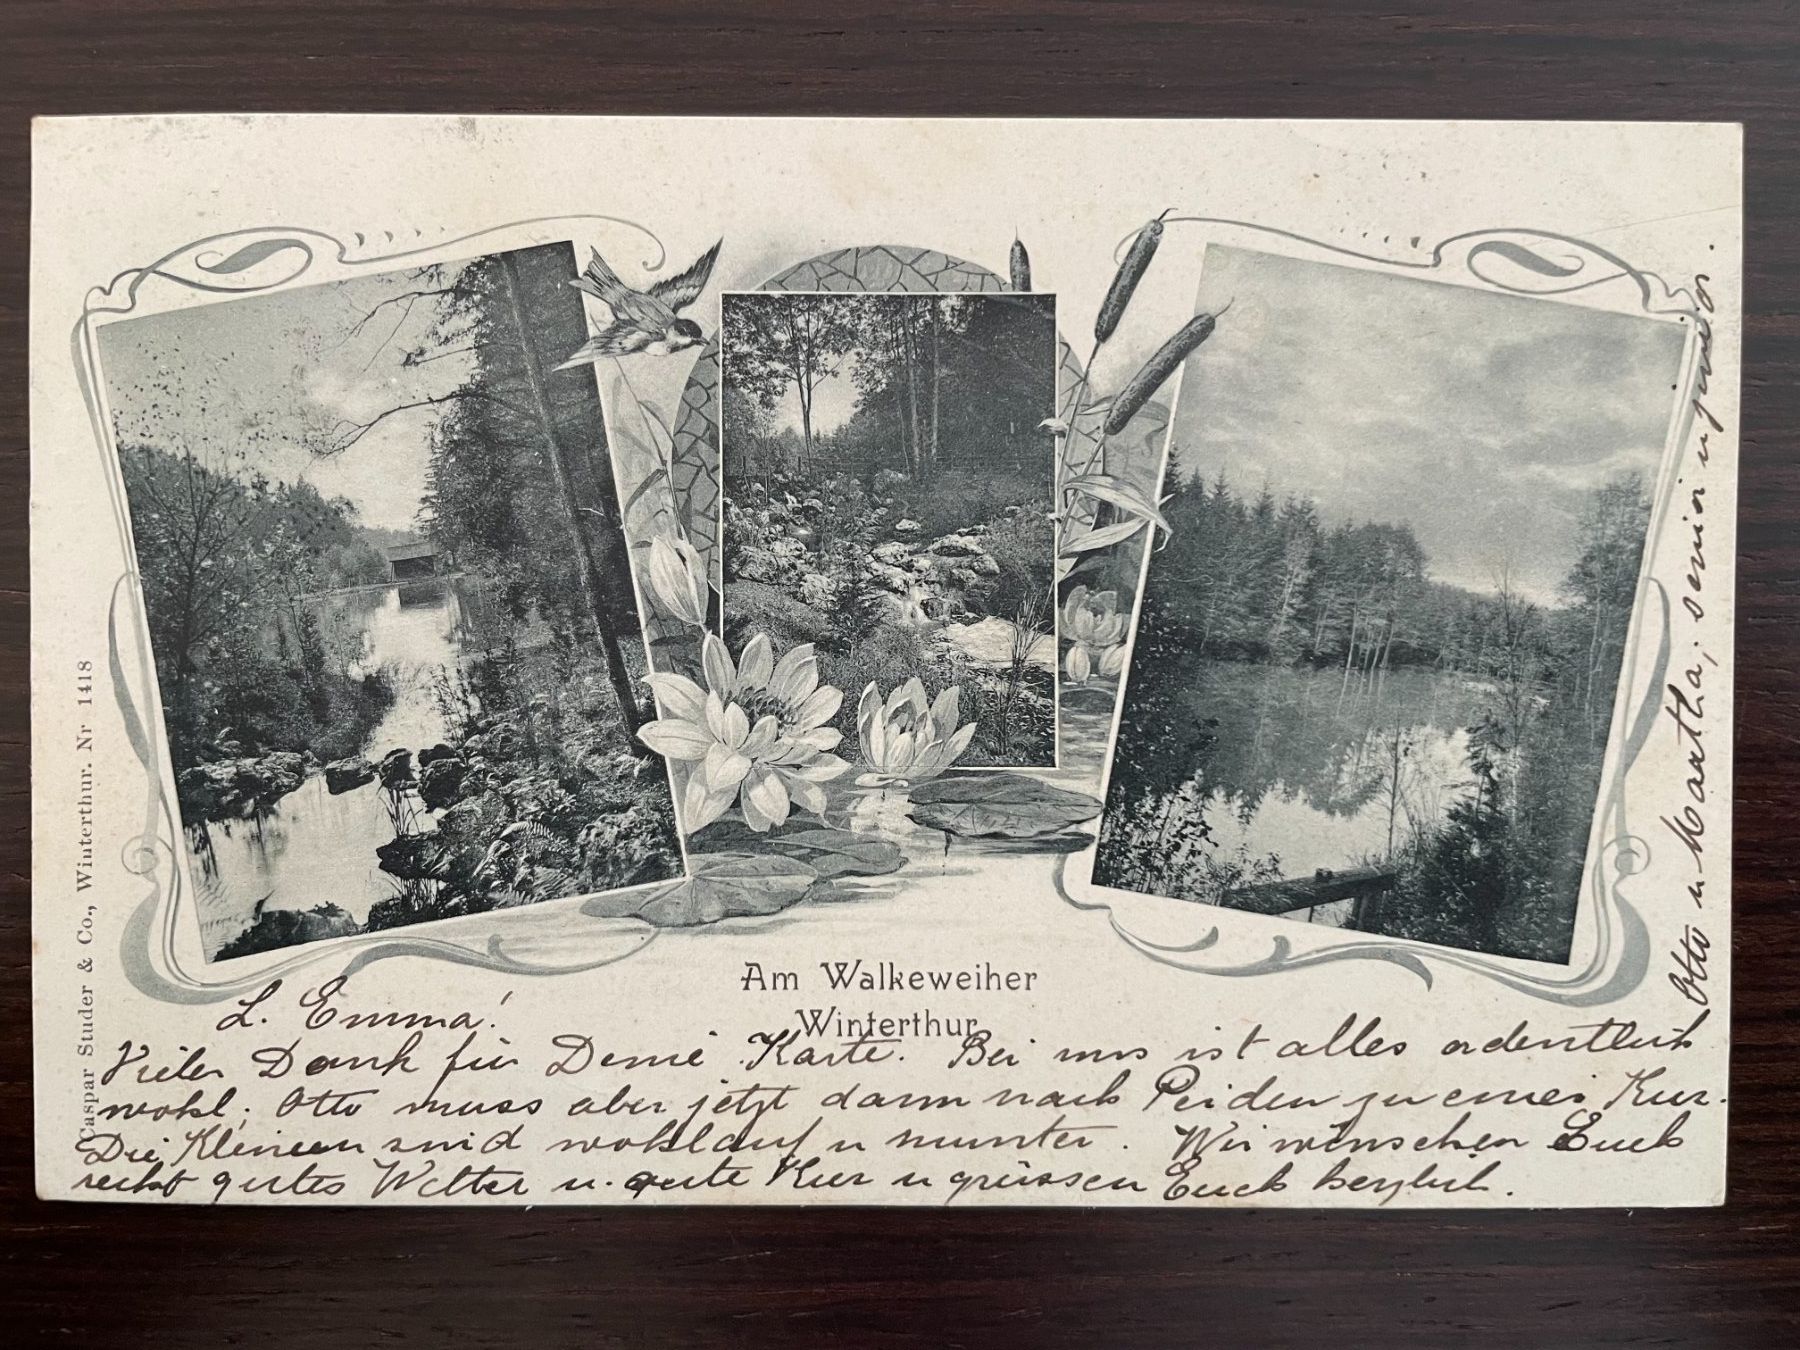 Caspar Studer & Co., Winterthur. Nr 1418
Am Walkeweiher
Winterthur
L. Emma!
Vielen Dank für Deine Karte. Bei uns ist alles ordentlich
wohl. Otto muss aber jetzt dann nach Peiden zu einer Kur.
Die Kleinen sind wohlauf u munter. Wir wünschen Euch
recht gutes Wetter u. gute Kur u grüssen Euch herzlich.
Otto u Martha, senior u junior.